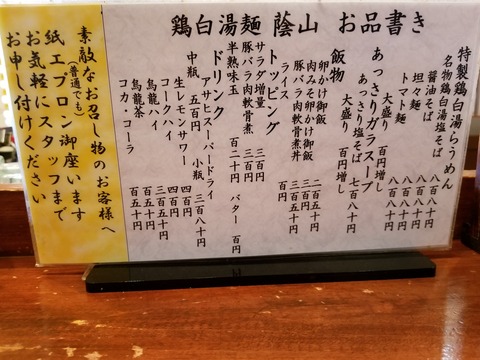 鶏白湯麺 蔭山 お品書き
特製鶏白湯らうめん
名物鶏白湯塩そば 八八十円
醤油そば 八八十円
坦々麺 八八十円
トマト麺 八八十円
大盛り 百円増し
あっさりガラスープ
あっさり塩そば 七八十円
大盛り 百円増し
飯物
卵かけ御飯 二百五十円
肉みそ卵かけ御飯 三百五十円
豚バラ肉軟骨煮丼 三百五十円
ライス 百円
トッピング
サラダ増量 三百円
豚バラ肉軟骨煮 三百円
半熟味玉 百二十円 バター 百円
ドリンク
アサヒスーパードライ
中瓶 五百円 小瓶 三百八十円
生レモンサワー 四百円
コークハイ 四百円
烏龍ハイ 三百五十円
烏龍茶 百五十円
コカ・コーラ 百五十円
素敵なお召し物のお客様へ
(普通でも)
紙エプロン御座います
お気軽にスタッフまで
お申し付けください